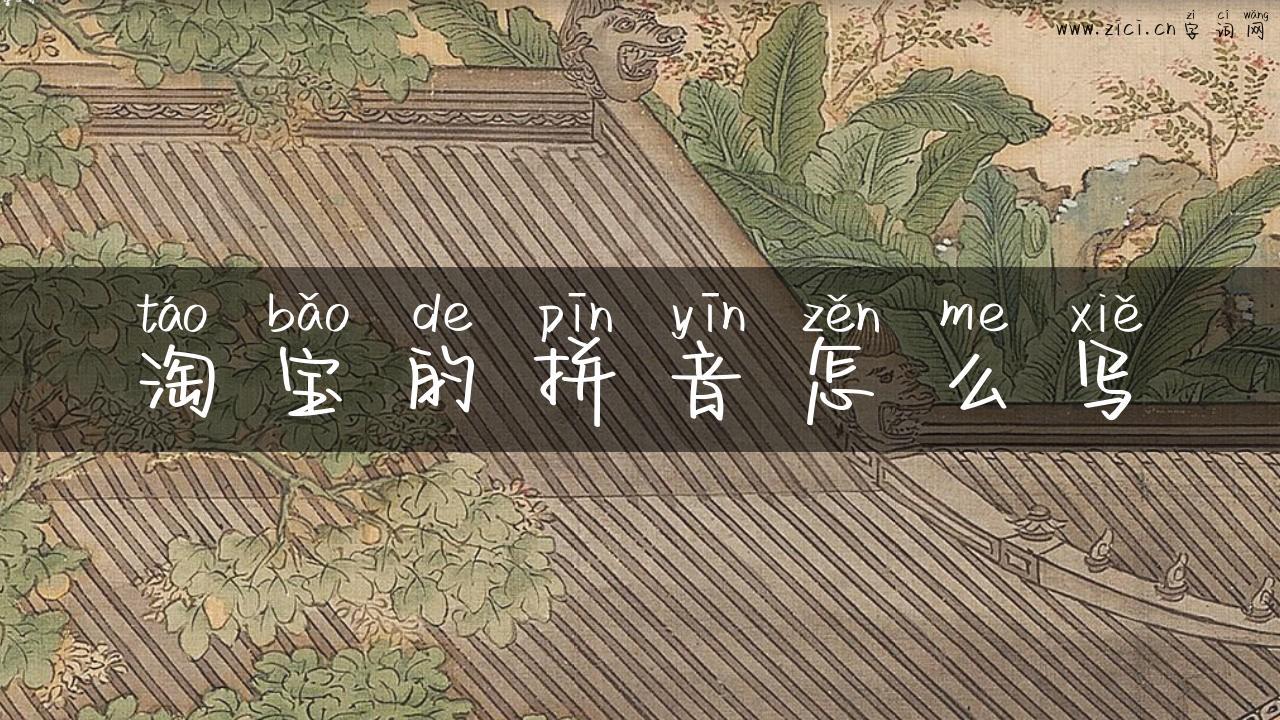 zì cí wǎng
www.zici.cn 字词网
táo bǎo de pīn yīn zěn me xiě
淘宝的拼音怎么写